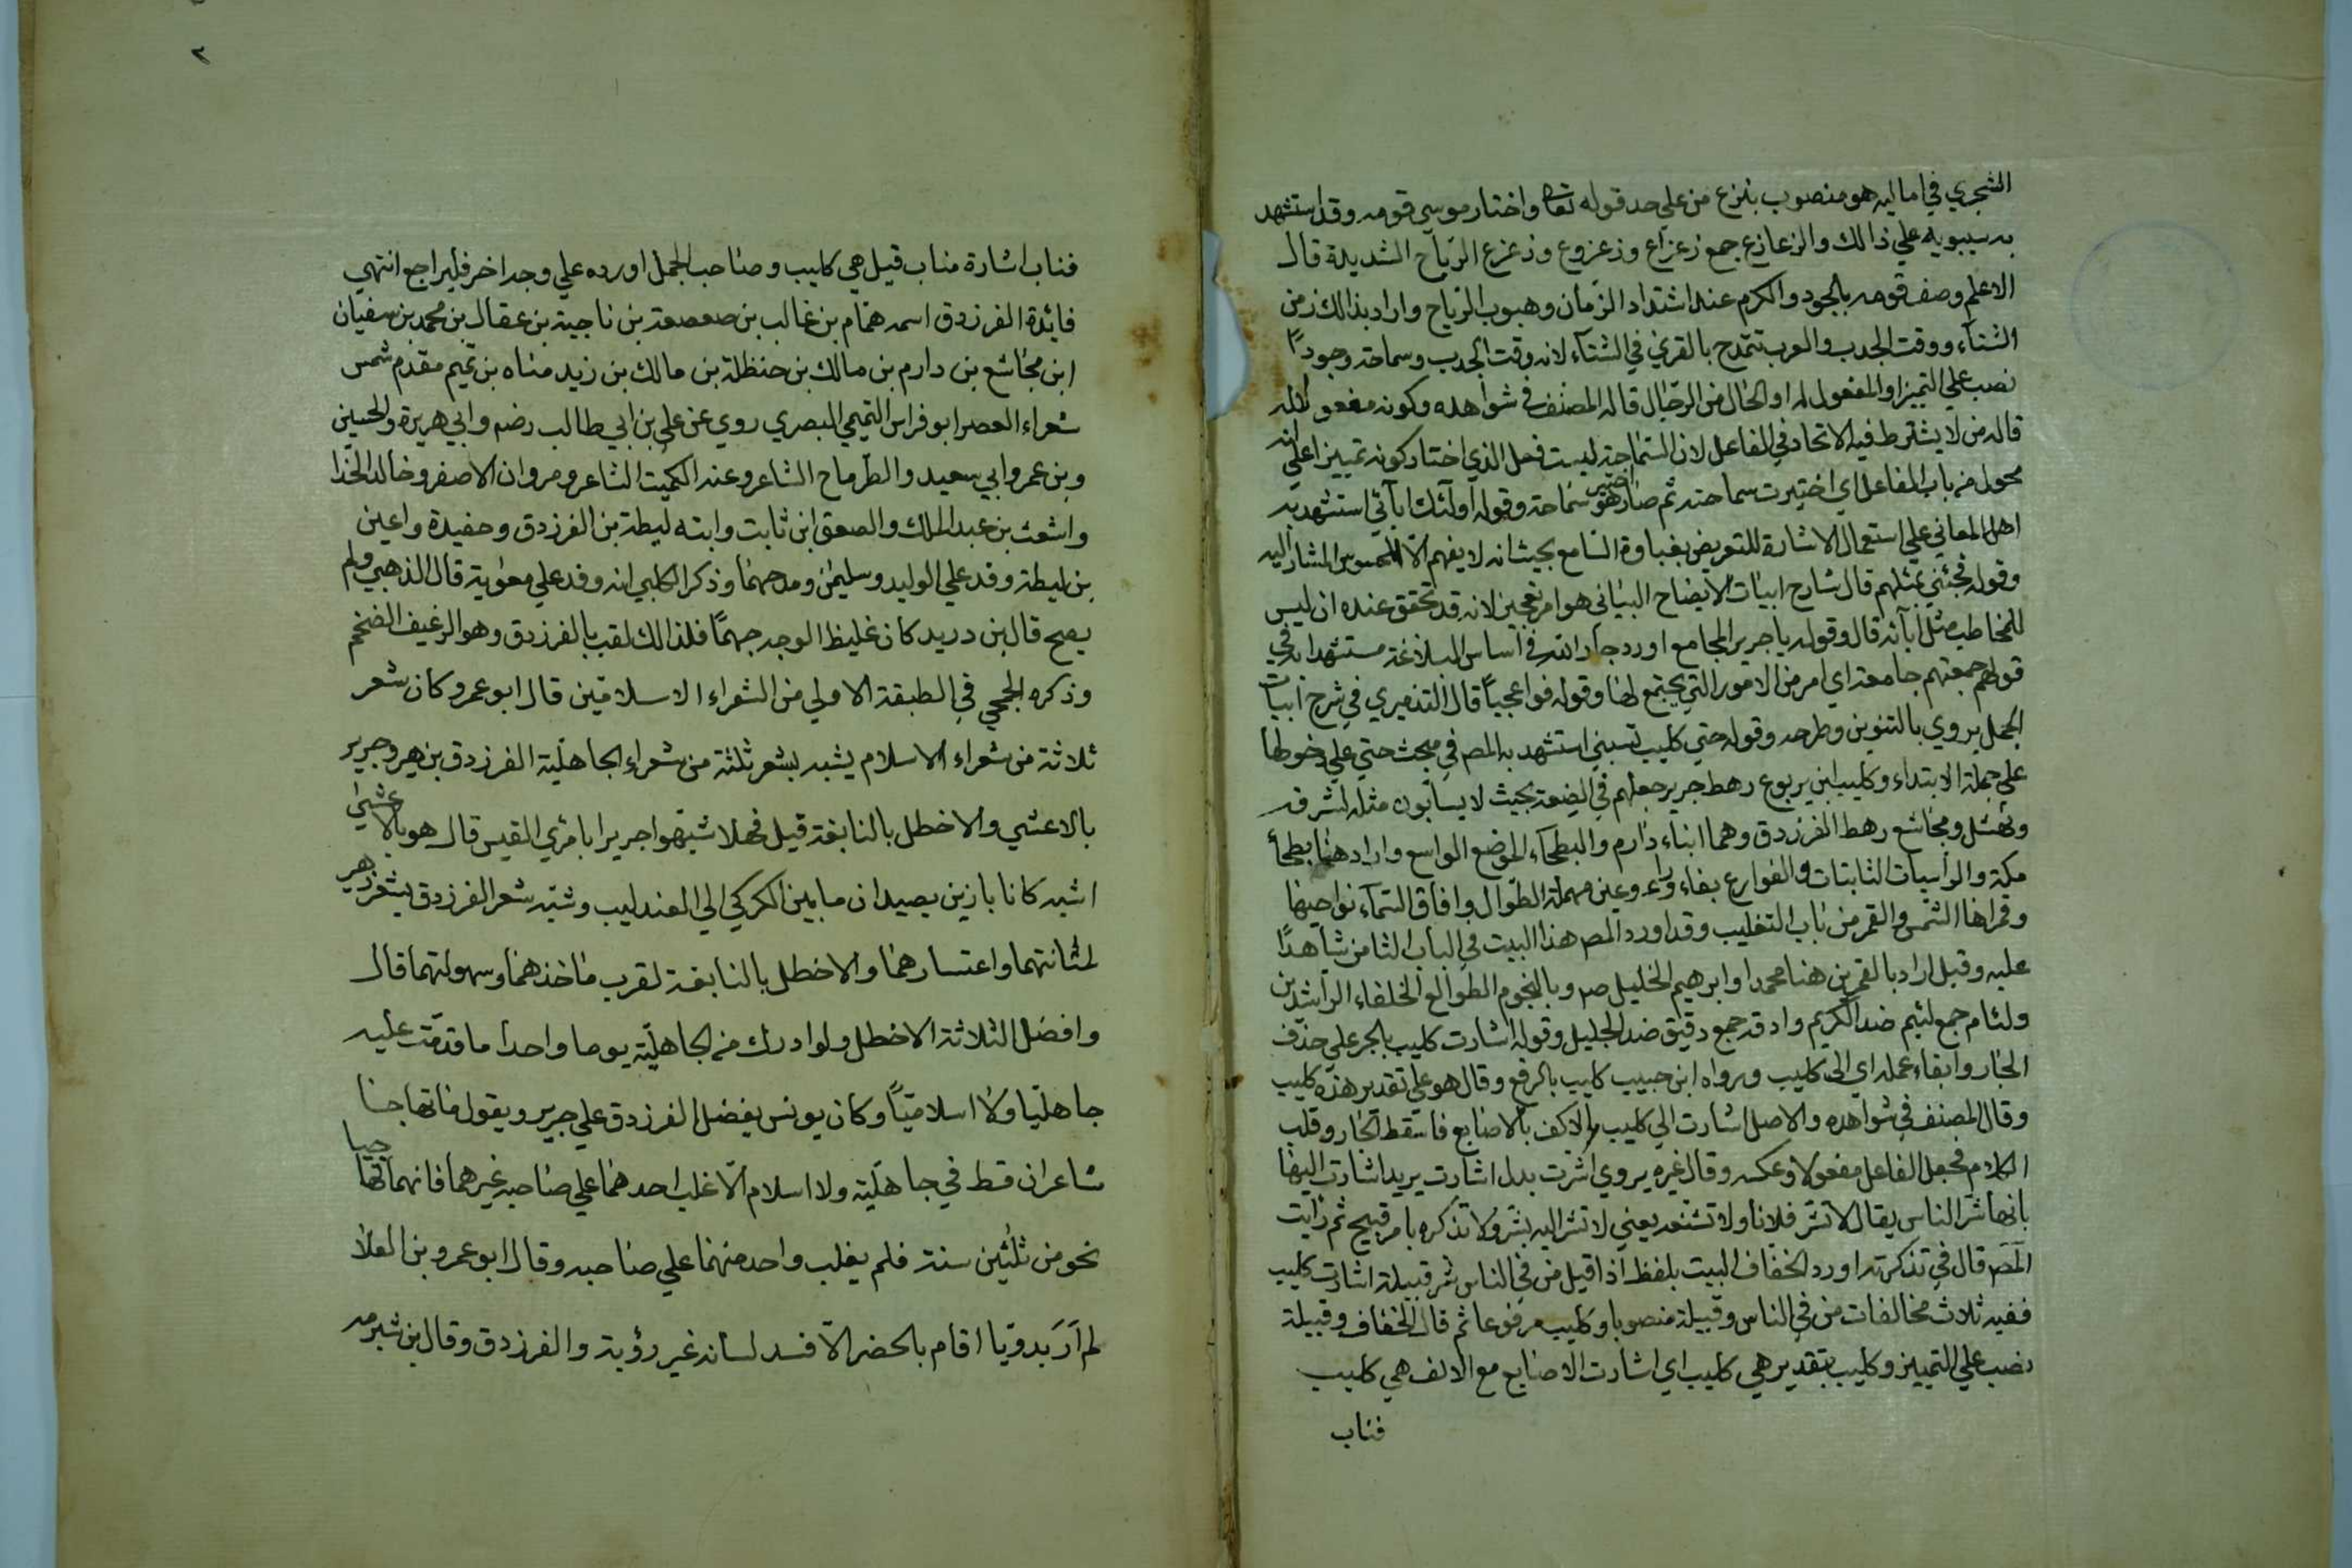 الشجري في اماليه هو منصوب بنزع من علي حد قوله تعالى واختار موسي قومه وقد استشهد
به سيبويه علي ذالك والزعازع جمع زعزاع وزعزوع وزعزع الرّياح الشديدة قال
الاعلم وصف قومه بالجود والكرم عند اشتداد الزّمان وهبوب الرّياح واراد بذالك زمن
الشتآء ووقت الجدب والعرب تتمدح بالقري في الشتآء لانه وقت الجدب وسماحة وجوداً
نصب علي التميز او المفعول له او الحال من الرجال قاله المصنف في شواهده وكونه مفعولا له
قاله من لا يشترط فيه الاتحاد في الفاعل لان السّماحة ليست فعل الذي اختار كونه تمييزا علي انه
محول من باب الفاعل اي اختيرت سماحته ثم صار اختير هو سماحة وقوله اولئك ابآئي استشهد به
اهل المعاني علي استعمال الاشارة للتعريض بغباوة السّامع بحيث انه لا يفهم الاّ المحسوس المشار اليه
وقوله فجئني بمثلهم قال شارح ابيات الايضاح البياني هو امر تعجيز لانه قد تحقق عنده ان ليس
للمخاطب مثل ابآئه قال وقوله يا جرير المجامع اورده جار الله في اساس البلاغة مستشهدا به في
قولهم جمعتهم جامعة اي امر من الامور التي يجتمع لها وقوله فواعجباً قال التدميري في شرح ابيات
الجمل يروي بالتنوين وطرحه وقوله حتي كليب تسبني استشهد به المص في مبحث حتي علي دخولها
علي جملة الابتداء وكليب ابن يربوع رهط جرير جعلهم في الضعة بحيث لا يسابّون مثله لشرفه
ونهشل ومجاشع رهط الفرزدق وهما ابناء دارم والبطحآء الموضع الواسع واراد هنا بطحآ
مكة والراسيات الثابتات والفوارع بفاء وراء وعين مهملة الطّوال وافاق السّمآء نواحيها
وقمراها الشمس والقمر من باب التغليب وقد اورد المص هذا البيت في الباب الثامن شاهدًا
عليه وقيل اراد بالقمرين هنا محمدا وابرهيم الخليل صم وبالنجوم الطوالع الخلفاء الرّاشدين
ولئام جمع لئيم ضد الكريم وادقه جمع دقيق ضد الجليل وقوله اشارت كليب بالجر علي حذف
الجار وابقاء عمله اي الى كليب ورواه ابن حبيب كليب بالرفع وقال هو علي تقدير هذه كليب
وقال المصنف في شواهده والاصل اشارت الي كليب الاكف بالاصابع فاسقط الجار وقلب
الكلام فجعل الفاعل مفعولا وعكسه وقال غيره يروي اشرّت بدل اشارت يريد اشارت اليها
بانها شرّ الناس يقال لا تشرّ فلانا ولا تشنعه يعني لا تشر اليه بشر ولا تذكره بامر قبيح ثم رايت
المص قال في تذكرته اورد الخفّاف البيت بلفظ اذا قيل من في الناس شر قبيلة اشارت كليب
ففيه ثلاث مخالفات من في الناس وقبيلة منصوبا وكليب مرفوعا ثم قال الخفاف وقبيلة
نصب علي التمييز وكليب بتقدير هي كليب اي اشارت الاصابع مع الالف هي كليب
فناب
٢
فناب اشارة مناب قيل هي كليب وصاحب الجمل اورده علي وجه اخر فليراجع انتهي
فايدة الفرزدق اسمه همّام بن غالب بن صعصعة بن ناجية بن عقال بن محمد بن سفيان
ابن مجاشع بن دارم بن مالك بن حنظلة بن مالك بن زيد مناه بن تميم مقدم شمس
شعراء العصر ابو فراس التميمي البصري روي عن علي بن ابي طالب رضه وابي هريرة والحسين
وبن عمر وابي سعيد والطرماح الشاعر وعنه الكميت الشاعر ومروان الاصفر وخالد الحذا
واشعث بن عبد الملك والصعق ابن ثابت وابنه لبطة بن الفرزدق وحفيدة واعين
بن لبطة وفد علي الوليد وسليمن ومدحهما وذكر الكلبي انه وفد علي معوية قال الذهبي ولم
يصح قال بن دريد كان غليظ الوجه جهمًا فلذالك لقب بالفرزدق وهو الرغيف الضخم
وذكره الجمحي في الطبقة الاولي من الشعراء الاسلاميّن قال ابو عمرو كان شعر
ثلاثة من شعراء الاسلام يشبه بشعر ثلثة من شعراء الجاهليّة الفرزدق بزهير وجرير
بالاعشي والاخطل بالنابغة قيل فهلا شبّهوا جريرا بامرئ القيس قال هو بالاعشي
اشبه كانا بازين يصيدان ما بين الكركي الي العندليب وشبّه شعر الفرزدق بشعر زهير
لمثانتهما واعتسارهما والاخطل بالنابغة لقرب ماخذهما وسهولتهما قال
وافضل الثلاثة الاخطل ولو ادرك من الجاهليّة يوما واحدا ما قدّمت عليه
جاهليّا ولا اسلاميّاً وكان يونس يفضل الفرزدق علي جرير ويقول ما تهاجا
شاعران قط في جاهليّة ولا اسلام الاّ غلب احدهما علي صاحبه غيرهما فانهما تهاجيا
نحو من ثلثين سنة فلم يغلب واحد منهما علي صاحبه وقال ابو عمرو بن العلا
لم اَرَ بدويّا اقام بالحضر الاّ فسد لسانه غير رؤبة والفرزدق وقال بن شبرمه